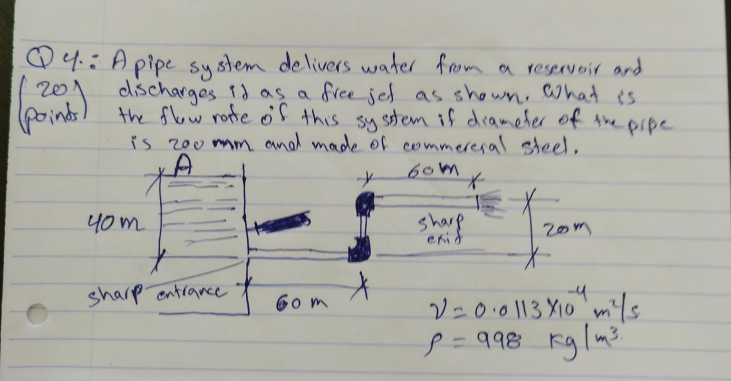 Q 4.: A pipe system delivers water from a reservoir and
(20 points) discharges it as a free jet as shown. What is
the flow rate of this system if diameter of the pipe
is 200 mm and made of commercial steel.
A
60 m
40 m
sharp exit
20 m
sharp entrance
60 m
ν = 0.0113 × 10⁻⁴ m²/s
ρ = 998 kg/m³